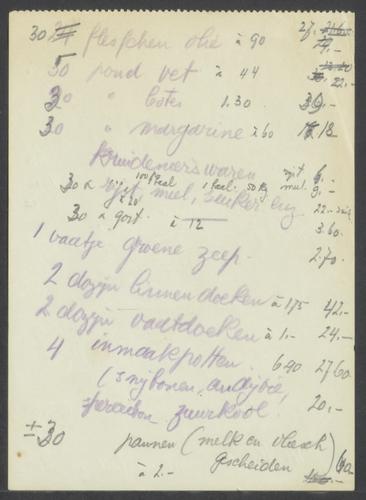 30 flesschen olie à 90 27.-
50 pond vet à 44 22.-
30 " boter 1.30 39.-
30 " margarine à 60 18
kruidenierswaren
30 x rijst, meel, suiker enz 22.-
30 x gort à 12 3.60
1 vaatje groene zeep 2.70
2 dozijn linnendoeken à 1.75 42.-
2 dozijn vaatdoeken à 1.- 24.-
4 inmaakpotten. 6.90 27.60
(snijbonen, andijvie,
zuurkool. 20.-
± 30 pannen (melk en vleesch
gescheiden) 60
à 2.-